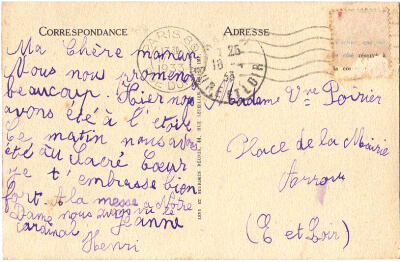 CORRESPONDANCE
ADRESSE
Ma Chère maman
Nous nous promenons
beaucoup. Hier nous
avons été à l'étoile
Ce matin nous avons
été au Sacré Cœur
je t'embrasse bien
fort. A la messe a Notre
Dame nous avons vu le
cardinal Jeanne
Henri
PARIS
1933
EURE ET LOIR
Madame Vve Poirier
Place de la Mairie
(E et Loir)